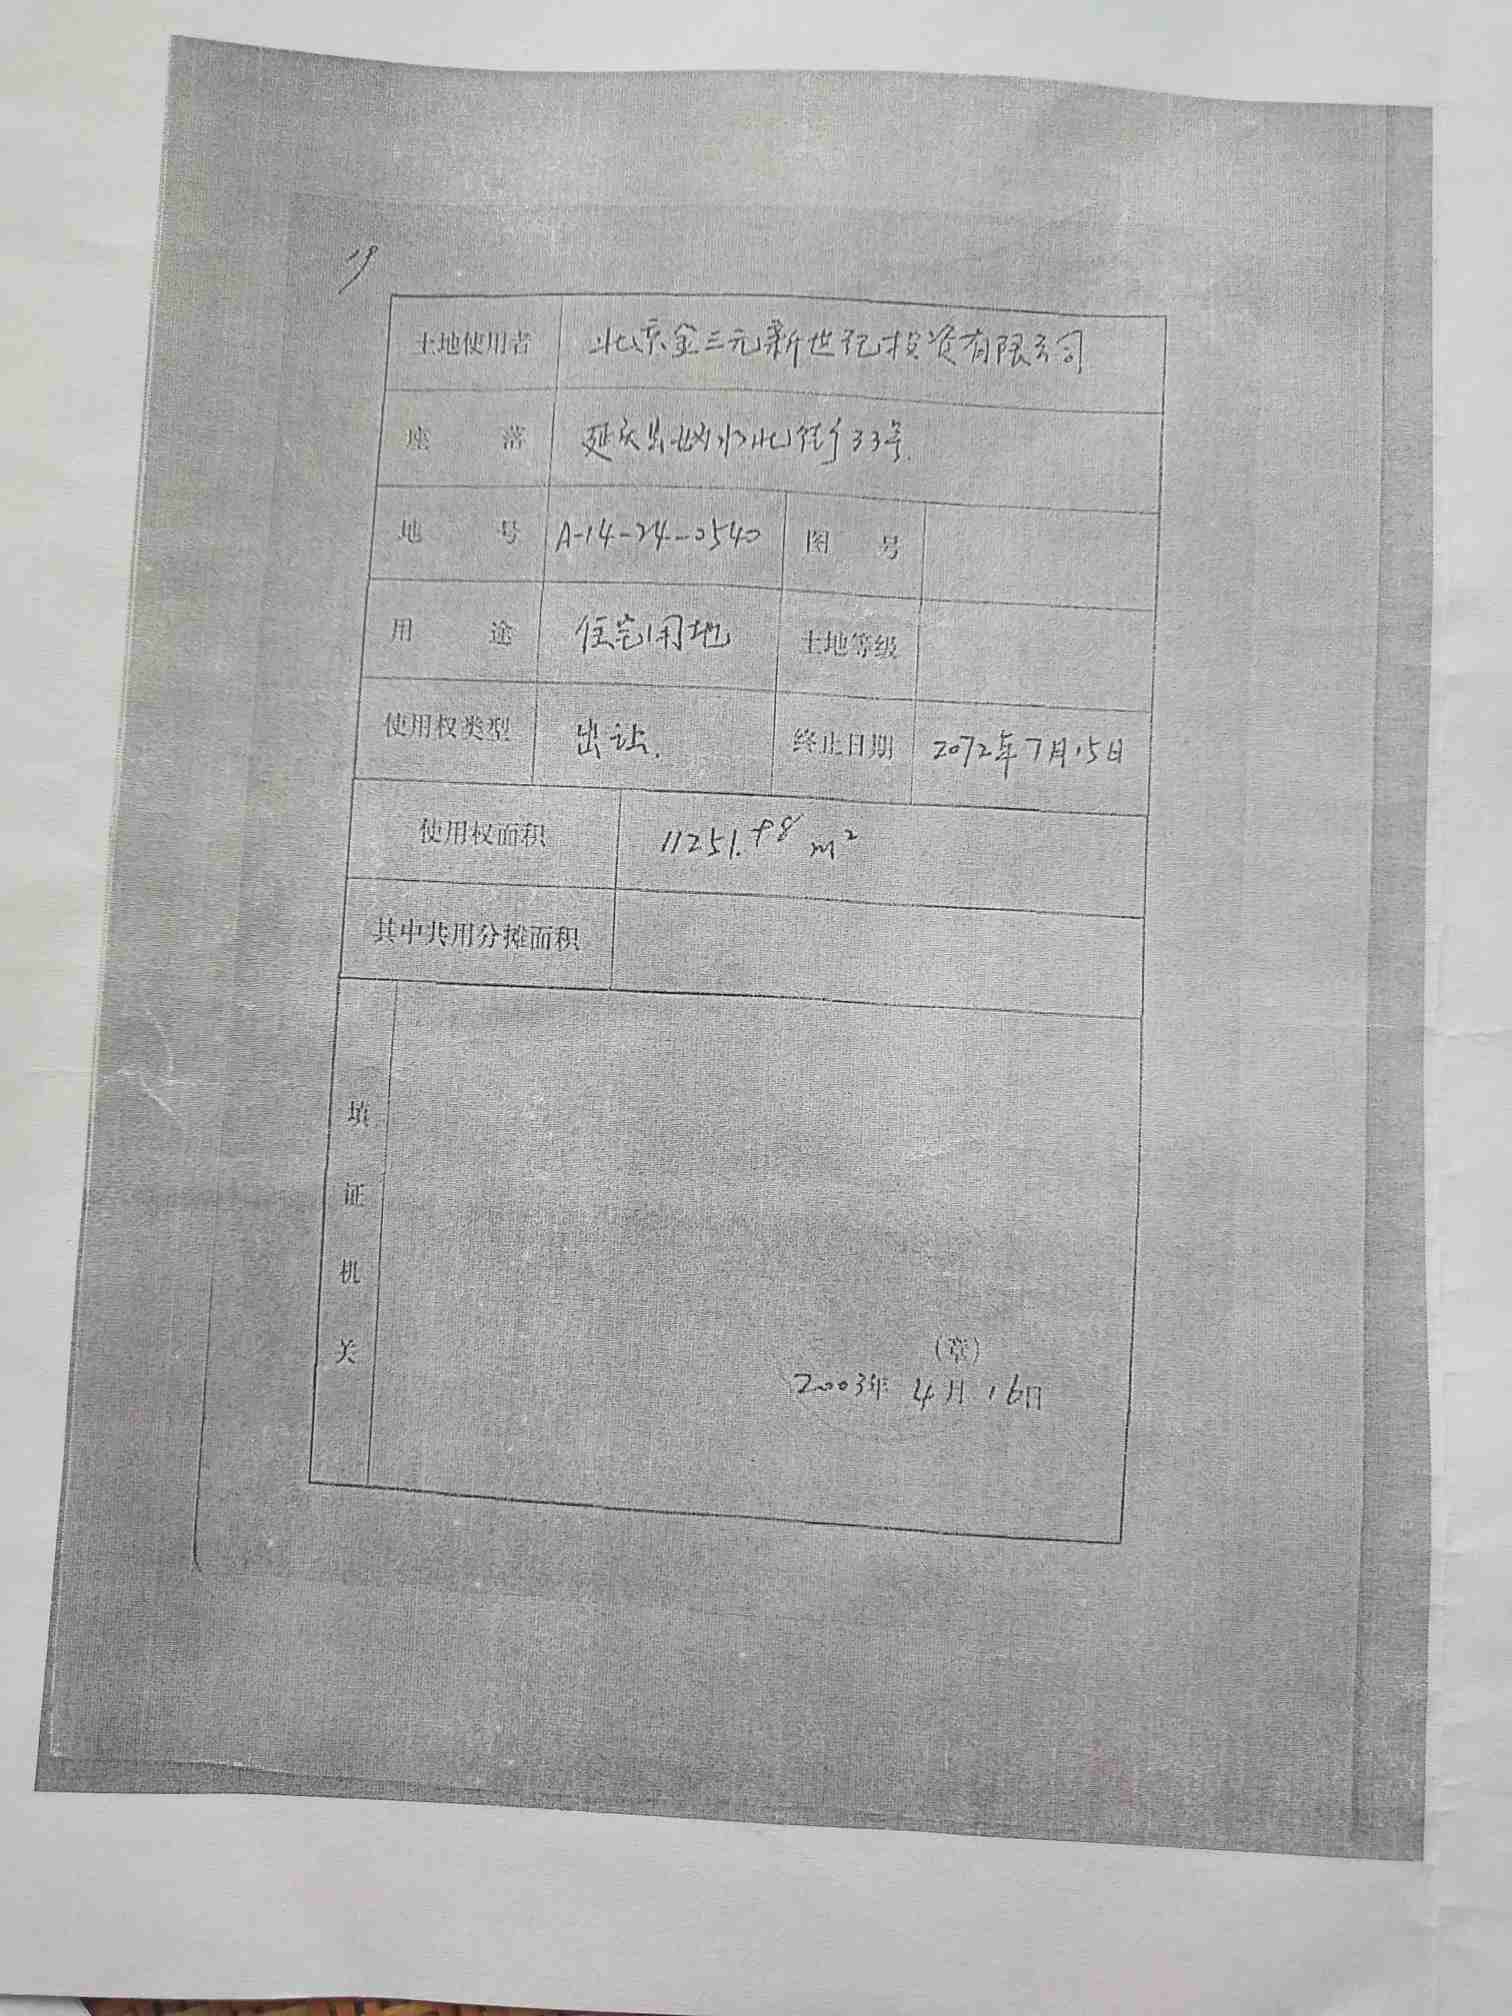 19
土地使用者 北京金三元新世纪投资有限公司
座 落 延庆县妫水北街33号.
地 号 A-14-24-0540 图 号
用 途 住宅用地 土地等级
使用权类型 出让. 终止日期 2072年7月15日
使用权面积 11251.98 m²
其中共用分摊面积
填
证
机
关
(章)
2003年 4月 16日